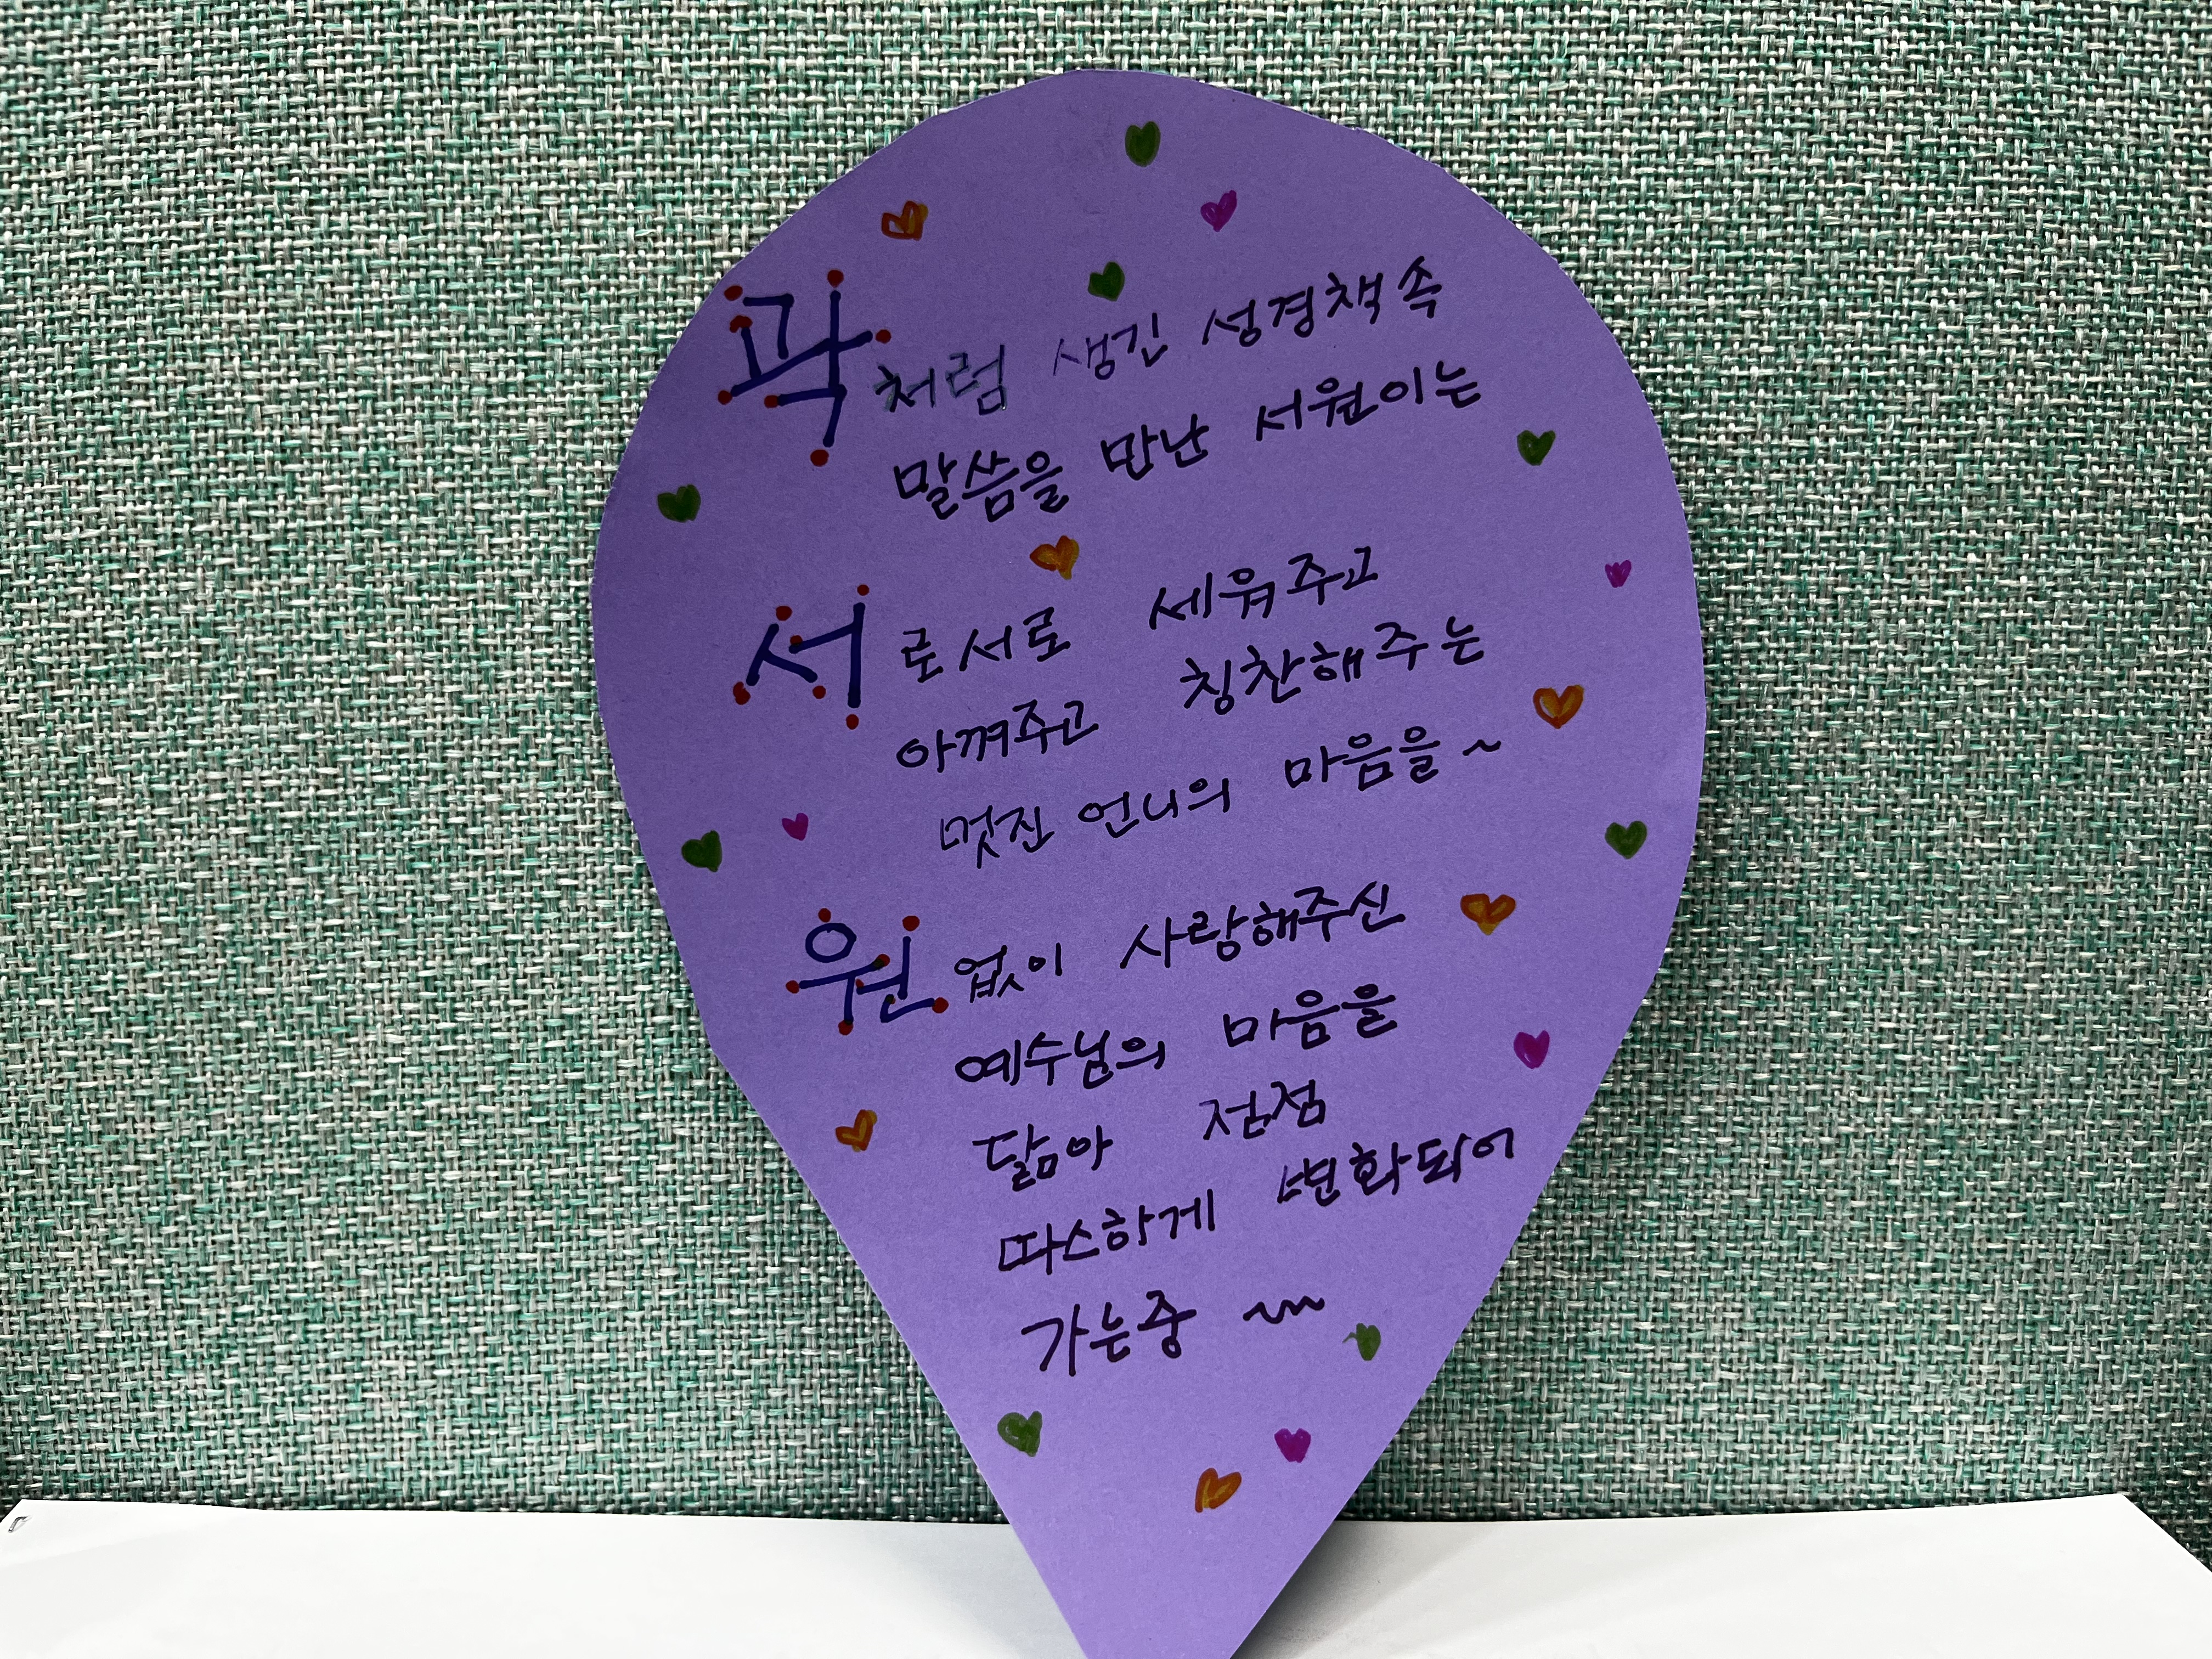 곽처럼 생긴 성경책 속
말씀을 만난 서원이는
서로서로 세워주고
아껴주고 칭찬해주는
멋진 언니의 마음을~
원없이 사랑해주신
예수님의 마음을
닮아 점점
따스하게 변화되어
가는중 ~~